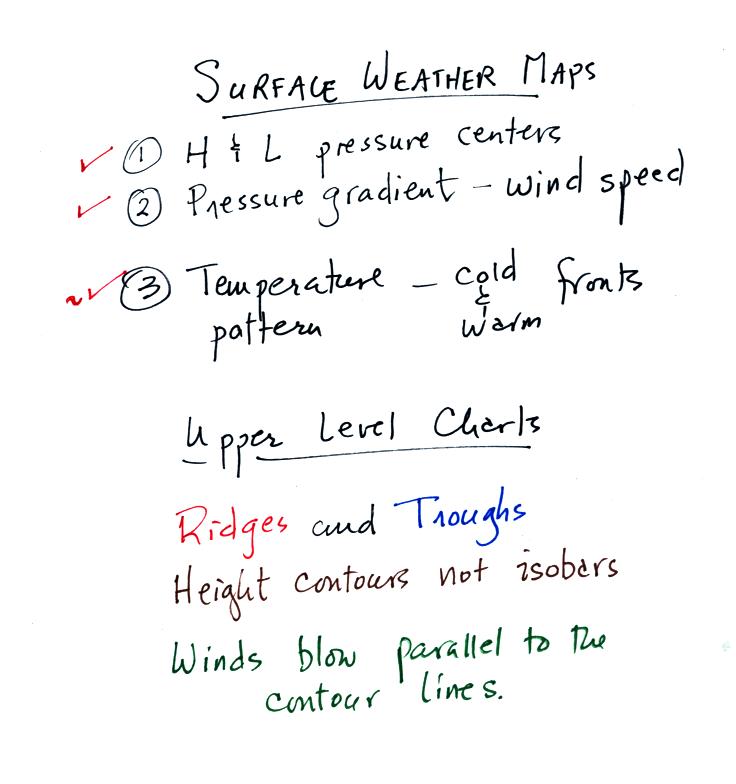 SURFACE WEATHER MAPS
① H & L pressure centers
② Pressure gradient – wind speed
③ Temperature – cold fronts
pattern & warm
Upper Level Charts
Ridges and Troughs
Height contours not isobars
Winds blow parallel to the
contour lines.